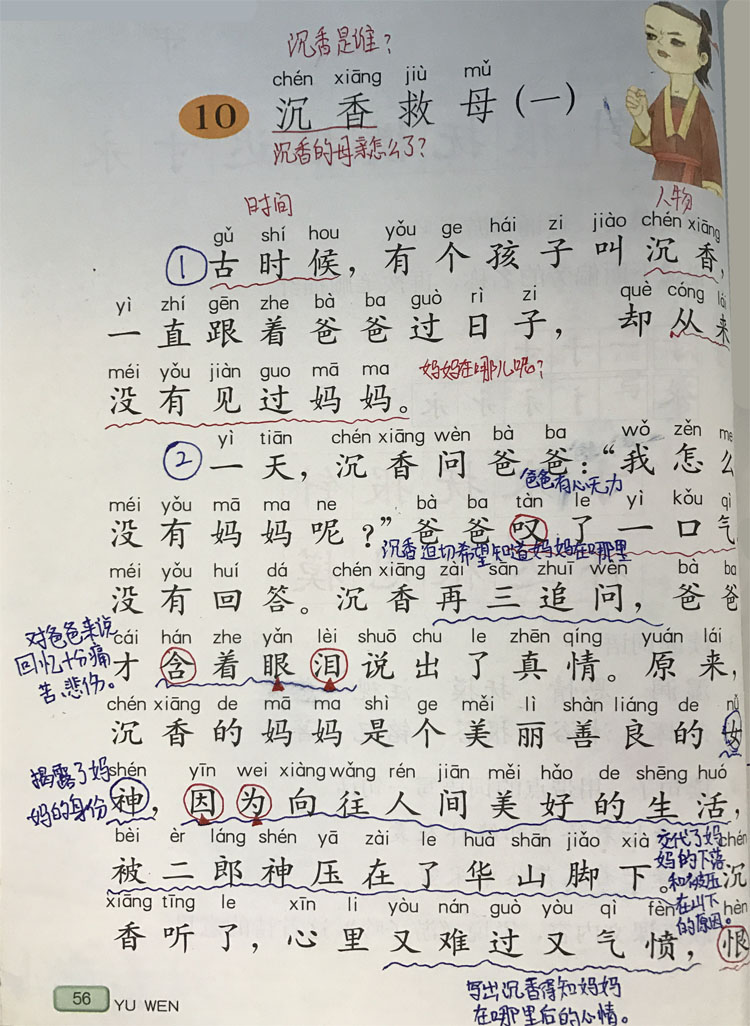 沉香是谁？
chén xiāng jiù mǔ
10 沉香救母（一）
沉香的母亲怎么了？
时间 人物
gǔ shí hou yǒu ge hái zi jiào chén xiāng
① 古时候，有个孩子叫沉香，
yì zhí gēn zhe bà ba guò rì zi què cóng lái
一直跟着爸爸过日子，却从来
méi yǒu jiàn guo mā ma
没有见过妈妈。
妈妈在哪儿呢？
yì tiān chén xiāng wèn bà ba wǒ zěn me
② 一天，沉香问爸爸：“我怎么
爸爸有心无力
méi yǒu mā ma ne bà ba tàn le yì kǒu qì
没有妈妈呢？”爸爸叹了一口气
沉香迫切希望知道妈妈在哪里
méi yǒu huí dá chén xiāng zài sān zhuī wèn bà ba
没有回答。沉香再三追问，爸爸
对爸爸来说
回忆十分痛
苦、悲伤。
cái hán zhe yǎn lèi shuō chu le zhēn qíng yuán lái
才含着眼泪说出了真情。原来，
chén xiāng de mā ma shì ge měi lì shàn liáng de nǚ
沉香的妈妈是个美丽善良的女
揭露了妈
妈的身份
shén yīn wei xiàng wǎng rén jiān měi hǎo de shēng huó
神，因为向往人间美好的生活，
bèi èr láng shén yā zài le huà shān jiǎo xià chén
被二郎神压在了华山脚下。沉
交代了妈
妈的下落
和被压
在山下
的原因。
xiāng tīng le xīn li yòu nán guò yòu qì fèn hèn
香听了，心里又难过又气愤，恨
写出沉香得知妈妈
在哪里后的心情。
56 YU WEN